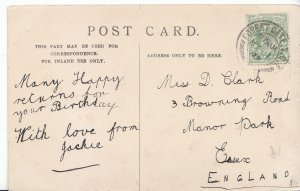 POST CARD.
THIS PART MAY BE USED FOR
CORRESPONDENCE.
FOR INLAND USE ONLY.
ADDRESS ONLY TO BE HERE.
Many Happy
returns for
your Birthday
With love from
Jackie
Miss D. Clark
3 Browning Road
Manor Park
Essex
ENGLAND